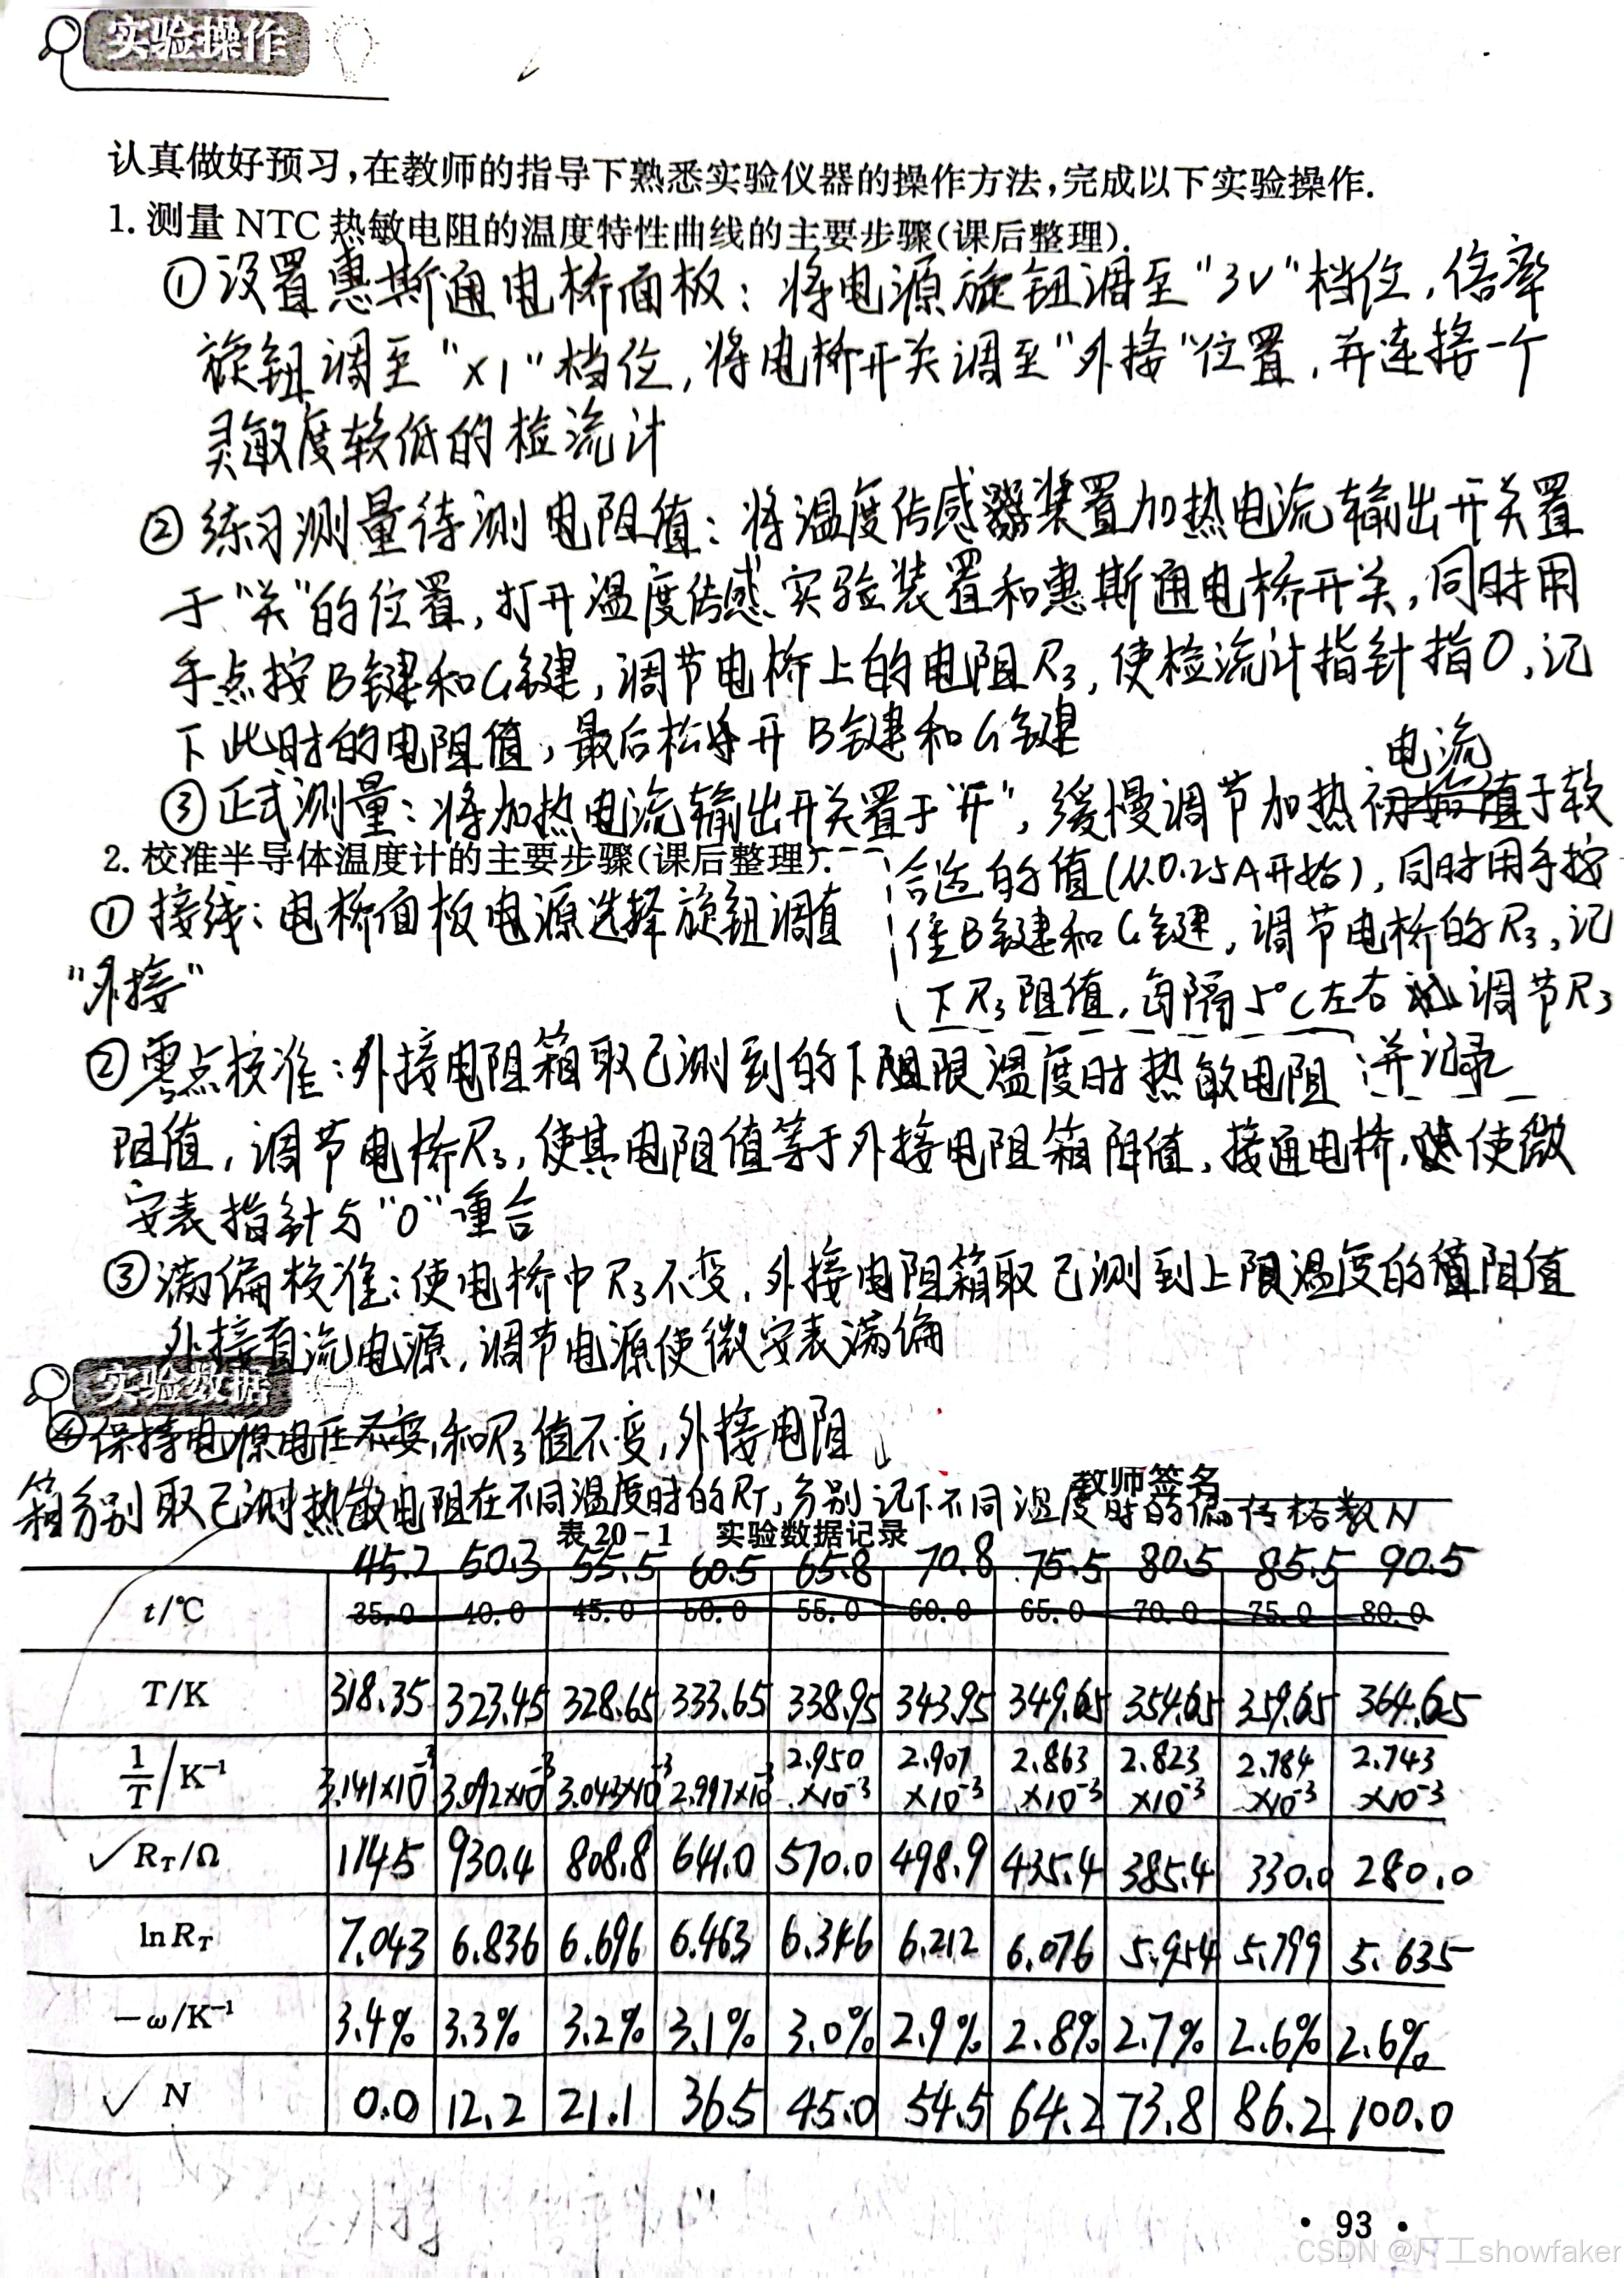 实验操作
认真做好预习,在教师的指导下熟悉实验仪器的操作方法,完成以下实验操作.
1. 测量 NTC 热敏电阻的温度特性曲线的主要步骤(课后整理).
①设置惠斯通电桥面板：将电源旋钮调至"3V"档位，倍率
旋钮调至"×1"档位，将电桥开关调至"外接"位置，并连接一个
灵敏度较低的检流计
②练习测量待测电阻值：将温度传感器装置加热电流输出开关置
于"关"的位置，打开温度传感实验装置和惠斯通电桥开关，同时用
手点按B键和G键，调节电桥上的电阻R₃，使检流计指针指0，记
下此时的电阻值，最后松开B键和G键
电流
③正式测量：将加热电流输出开关置于"开"，缓慢调节加热于较
2. 校准半导体温度计的主要步骤(课后整理).
合适的值(从0.25A开始)，同时用手按
①接线：电桥面板电源选择旋钮调值
住B键和G键，调节电桥的R₃，记
"外接"
下R₃阻值，每隔5°C左右调节R₃
②零点校准：外接电阻箱取已测到的下限温度时热敏电阻
并记录
阻值，调节电桥R₃，使其电阻值等于外接电阻箱阻值，接通电桥，使微
安表指针与"0"重合
③满偏校准：使电桥中R₃不变，外接电阻箱取已测到上限温度的阻值
外接直流电源，调节电源使微安表满偏
实验数据
④保持电源电压不变，和R₃值不变，外接电阻
教师签名
箱分别取已测热敏电阻在不同温度时的R_T，分别记下不同温度时的偏转格数N
表 20-1 实验数据记录
45.2 50.3 55.5 60.5 65.8 70.8 75.5 80.5 85.5 90.5
t/℃ 35.0 40.0 45.0 50.0 55.0 60.0 65.0 70.0 75.0 80.0
T/K 318.35 323.45 328.65 333.65 338.95 343.95 349.65 354.65 359.65 364.65
1/T/K⁻¹ 3.141×10⁻³ 3.092×10⁻³ 3.043×10⁻³ 2.997×10⁻³ 2.950×10⁻³ 2.907×10⁻³ 2.863×10⁻³ 2.823×10⁻³ 2.784×10⁻³ 2.743×10⁻³
✓R_T/Ω 1145 930.4 808.8 641.0 570.0 498.9 435.4 385.4 330.0 280.0
lnR_T 7.043 6.836 6.696 6.463 6.346 6.212 6.076 5.954 5.799 5.635
-ω/K⁻¹ 3.4% 3.3% 3.2% 3.1% 3.0% 2.9% 2.8% 2.7% 2.6% 2.6%
✓N 0.0 12.2 21.1 36.5 45.0 54.5 64.2 73.8 86.2 100.0
· 93 ·
CSDN @厂工showfaker